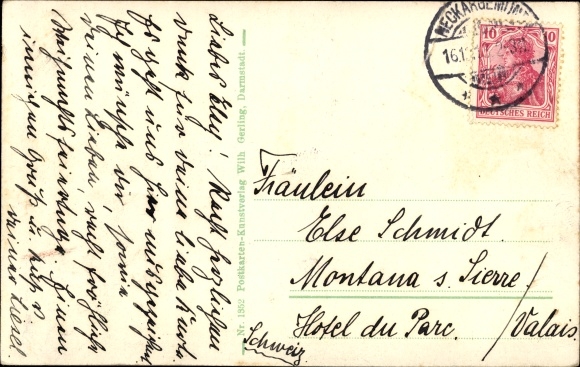 Liebes Elly! Recht herzlichen
Dank für deine liebe Karte.
Es geht uns hier ausgezeichnet.
Ich wünsche dir, sowie
deinen Lieben, recht fröhliche
Weihnachtsfeiertage. Einen
innigen Gruß u. Kuß v
deiner Liesel
Nr. 1852. Postkarten-Kunstverlag Wilh Gerling, Darmstadt.
NECKARGEMÜND
16.1
10 10
DEUTSCHES REICH
Fräulein
Else Schmidt.
Montana s. Sierre.
Hotel du Parc. / Valais.
Schweiz